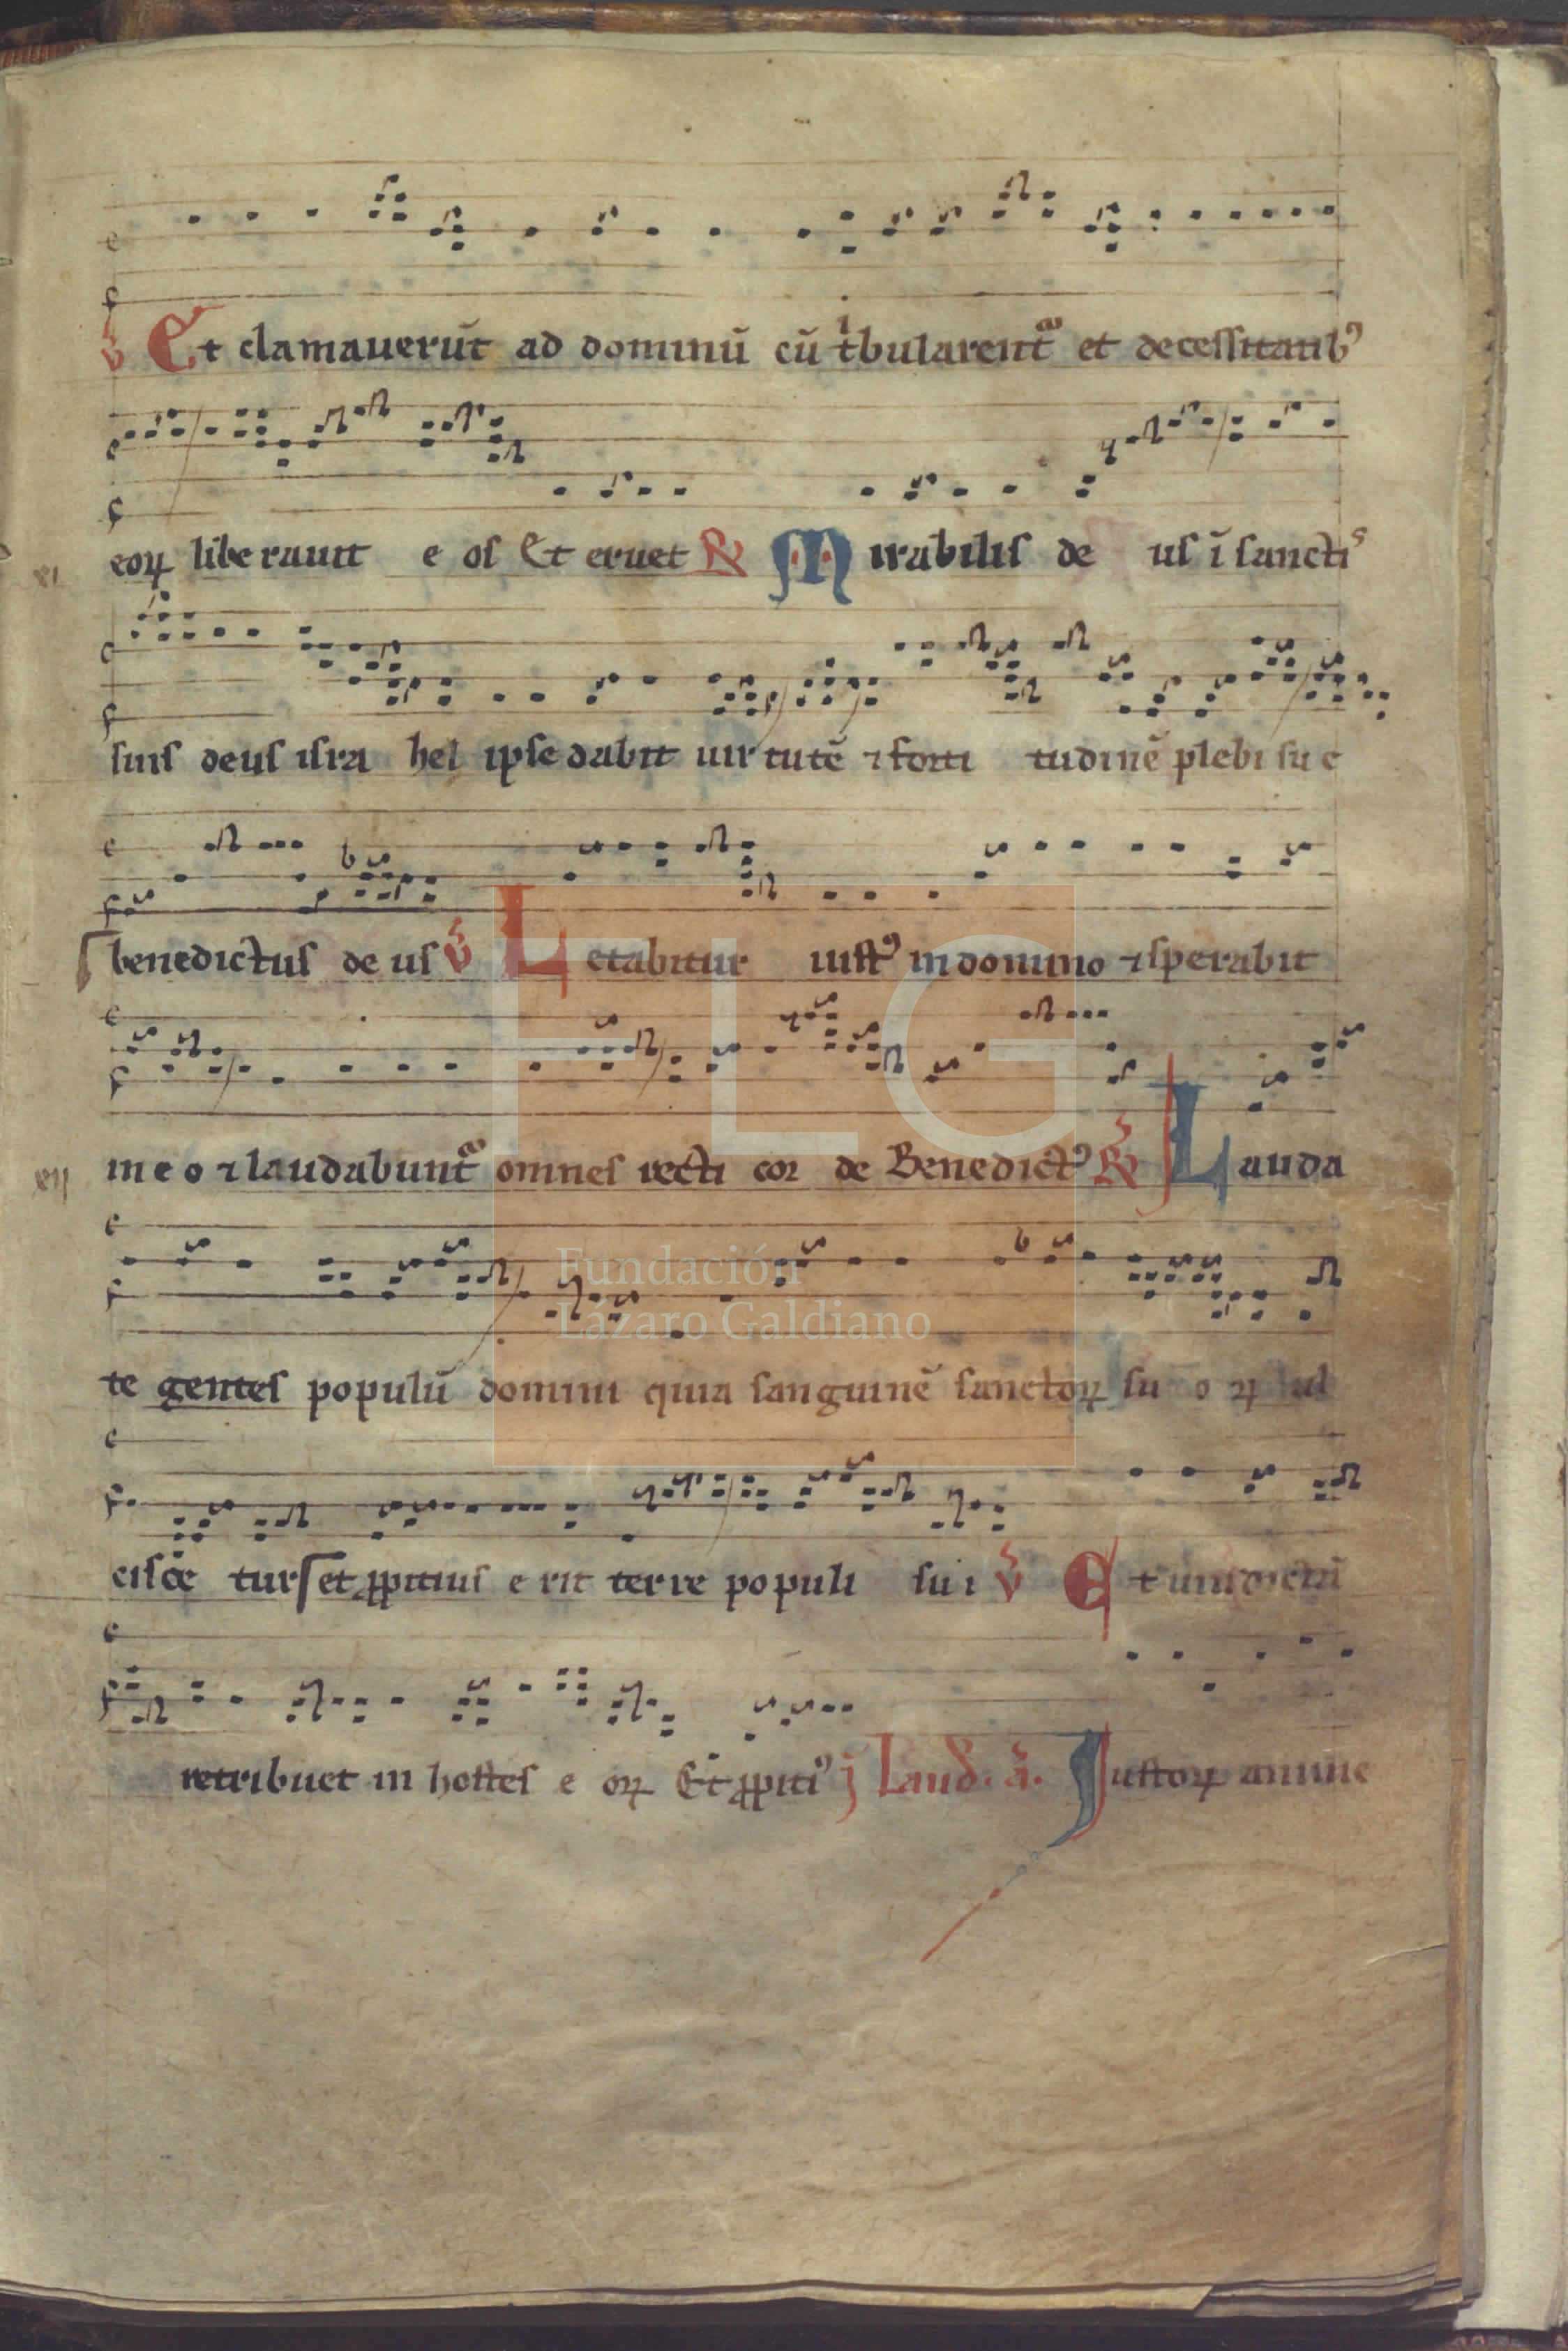 ℣ Et clamauerūt ad dominū cū tⁱbularentᵃ et decessitatibꝰ
eoꝝ liberauit e os Et eruet ℟ Mirabilis de us ī sanctiˢ
xi
suis deus isra hel ipse dabit uir tutē ⁊ forti tudinē plebi su e
benedictus de us ℣ Letabitur iustꝰ in domino ⁊ sperabit
in e o ⁊ laudabuntᵃ omnes recti cor de Benedictꝰ ℟ Lauda
xii
te gentes populū domini quia sanguinē sanctoꝝ su o ꝝ ul
cisce tur et ꝓpitius e rit terre populi su i ℣ Et uindictā
retribuet in hostes e oꝝ Et ꝓpitiꝰ j Laud. ā. Justoꝝ anime
FLG
Fundación
Lázaro Galdiano